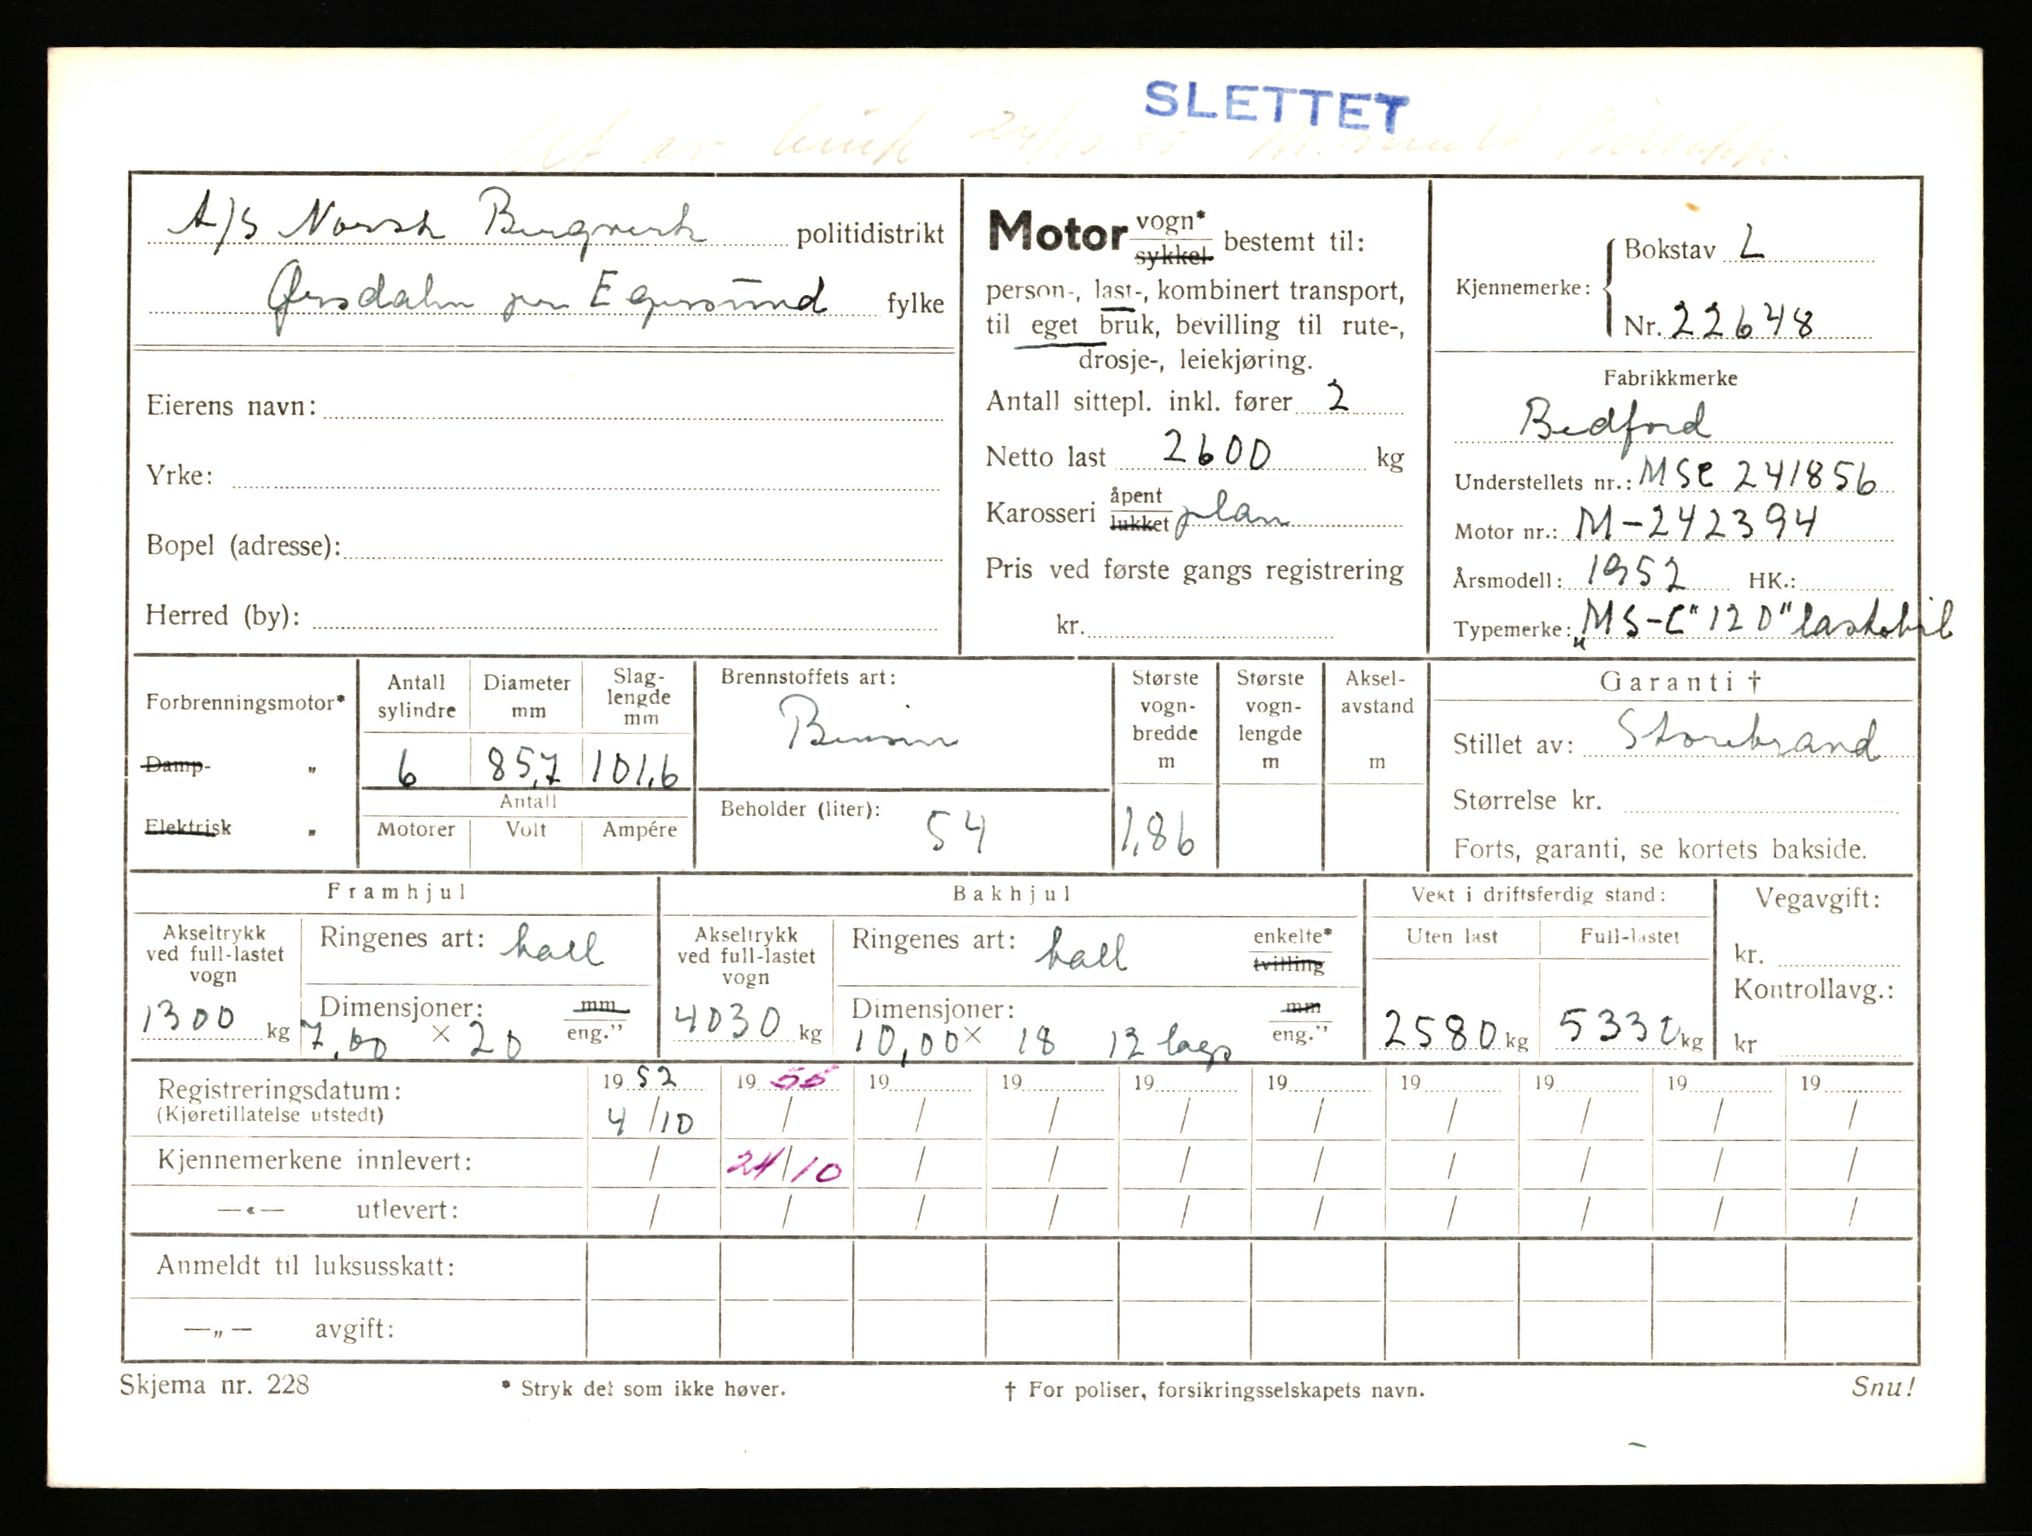 SLETTET
24/10-55
A/S Norsk Bergverk politidistrikt
Ørsdalen per Egersund fylke
Eierens navn:
Yrke:
Bopel (adresse):
Herred (by):
Motor vogn* sykkel bestemt til:
person-, last-, kombinert transport,
til eget bruk, bevilling til rute-,
drosje-, leiekjøring.
Antall sittepl. inkl. fører 2
Netto last 2600 kg
Karosseri åpent lukket plan
Pris ved første gangs registrering
kr.
Kjennemerke: Bokstav L
Nr. 22648
Fabrikkmerke
Bedford
Understellets nr.: MSC 241856
Motor nr.: M-242394
Årsmodell: 1952 HK.:
Typemerke: "MS-C" 12 D" lastebil
Forbrenningsmotor*
Damp- „
Elektrisk „
Antall sylindre
6
Diameter mm
85,7
Slaglengde mm
101,6
Antall
Motorer Volt Ampére
Brennstoffets art:
Bensin
Beholder (liter): 54
Største vogn-bredde m
1,86
Største vogn-lengde m
Aksel-avstand m
Garanti †
Stillet av: Storebrand
Størrelse kr.
Forts, garanti, se kortets bakside.
Framhjul
Akseltrykk ved full-lastet vogn
1300 kg
Ringenes art: hall
Dimensjoner: mm eng."
7,00 × 20
Bakhjul
Akseltrykk ved full-lastet vogn
4030 kg
Ringenes art: hall enkelte* tvilling
Dimensjoner: mm eng."
10,00 × 18 12 lags
Vekt i driftsferdig stand:
Uten last Full-lastet
2580 kg 5330 kg
Vegavgift:
kr.
Kontrollavg.:
kr
Registreringsdatum: 1952 1955 19 19 19 19 19 19 19 19
(Kjøretillatelse utstedt) 4/10 / / / / / / / / /
Kjennemerkene innlevert: / 24/10 / / / / / / / /
—«— utlevert: / / / / / / / / / /
Anmeldt til luksusskatt:
—„— avgift:
Skjema nr. 228 * Stryk det som ikke høver. † For poliser, forsikringsselskapets navn. Snu!